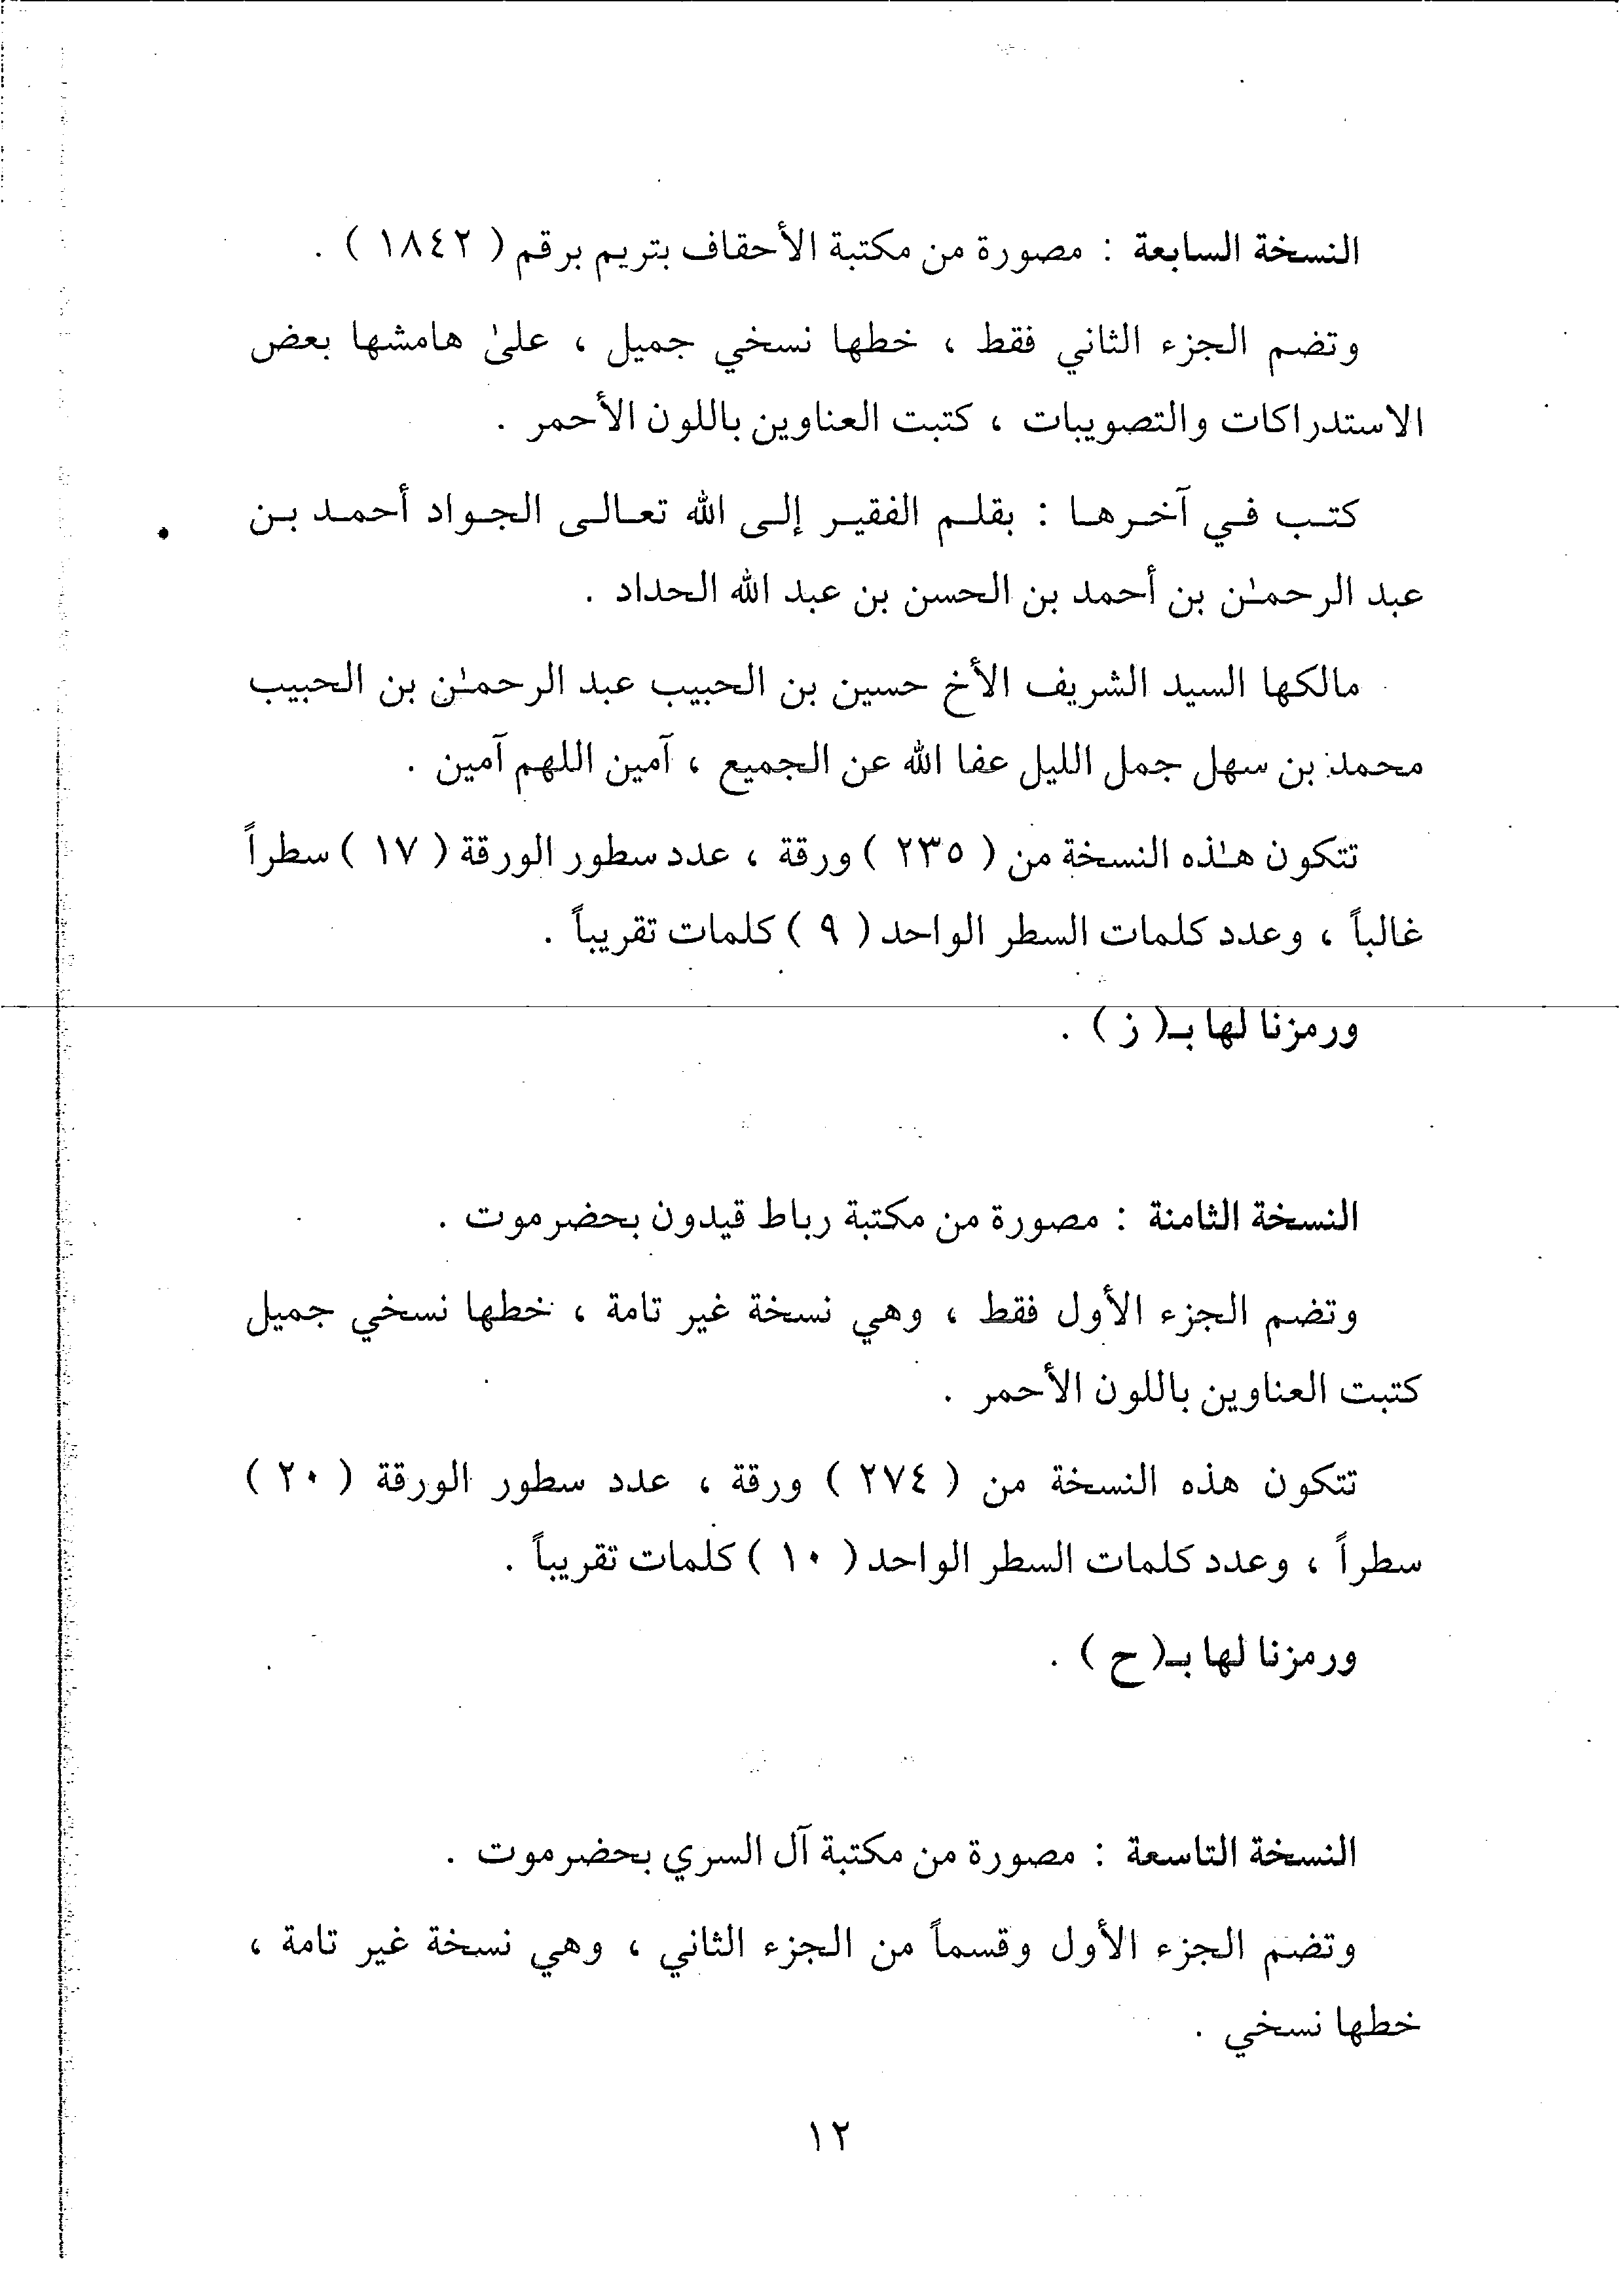 النسخة السابعة : مصورة من مكتبة الأحقاف بتريم برقم ( ١٨٤٢ ) .
وتضم الجزء الثاني فقط ، خطها نسخي جميل ، علىٰ هامشها بعض
الاستدراكات والتصويبات ، كتبت العناوين باللون الأحمر .
كتب في آخرها : بقلم الفقير إلى الله تعالى الجواد أحمد بن
عبد الرحمـٰن بن أحمد بن الحسن بن عبد الله الحداد .
مالكها السيد الشريف الأخ حسين بن الحبيب عبد الرحمـٰن بن الحبيب
محمد بن سهل جمل الليل عفا الله عن الجميع ، آمين اللهم آمين .
تتكون هـٰذه النسخة من ( ٢٣٥ ) ورقة ، عدد سطور الورقة ( ١٧ ) سطراً
غالباً ، وعدد كلمات السطر الواحد ( ٩ ) كلمات تقريباً .
ورمزنا لها بـ( ز ) .
النسخة الثامنة : مصورة من مكتبة رباط قيدون بحضرموت .
وتضم الجزء الأول فقط ، وهي نسخة غير تامة ، خطها نسخي جميل
كتبت العناوين باللون الأحمر .
تتكون هذه النسخة من ( ٢٧٤ ) ورقة ، عدد سطور الورقة ( ٢٠ )
سطراً ، وعدد كلمات السطر الواحد ( ١٠ ) كلمات تقريباً .
ورمزنا لها بـ( ح ) .
النسخة التاسعة : مصورة من مكتبة آل السري بحضرموت .
وتضم الجزء الأول وقسماً من الجزء الثاني ، وهي نسخة غير تامة ،
خطها نسخي .
١٢